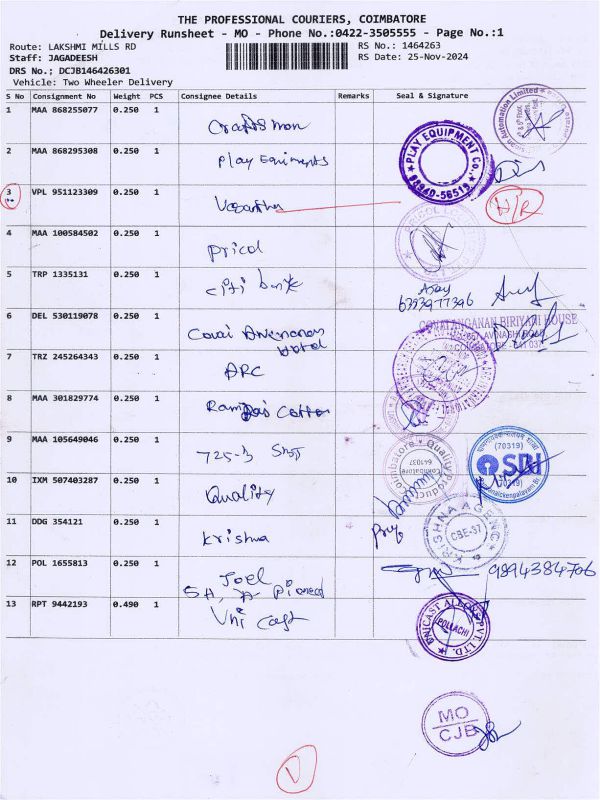 THE PROFESSIONAL COURIERS, COIMBATORE
Delivery Runsheet - MO - Phone No.:0422-3505555 - Page No.:1
Route: LAKSHMI MILLS RD
RS No.: 1464263
Staff: JAGADEESH
RS Date: 25-Nov-2024
DRS No.; DCJB146426301
Vehicle: Two Wheeler Delivery
S No Consignment No Weight PCS Consignee Details Remarks Seal & Signature
1 MAA 868255077 0.250 1 Craftsman
Automation Limited
2 MAA 868295308 0.250 1 Play Equiments
PLAY EQUIPMENT CO.,
94940-56519
3 VPL 951123309 0.250 1 Vasantha
H/R
4 MAA 100584502 0.250 1 Pricol
5 TRP 1335131 0.250 1 Citi bank
6393977396
6 DEL 530119078 0.250 1 Covai
Hotel
KOVAI ANGANAN BIRIYANI HOUSE
AVINASHI ROAD
COIMBATORE - 641 037
7 TRZ 245264343 0.250 1 ARC
8 MAA 301829774 0.250 1 Ramdas Cotton
9 MAA 105649046 0.250 1 725-
Quality Products
Coimbatore
641037
(70319)
SBI
(70319)
10 IXM 507403287 0.250 1 Quality
11 DDG 354121 0.250 1 Krishna
KRISHNA AGENC
CBE-37
12 POL 1655813 0.250 1 Joel
9894384706
13 RPT 9442193 0.490 1 Uni Cast
UNICAST ALLOYS PVT. LTD.
POLLACHI
MO
CJB